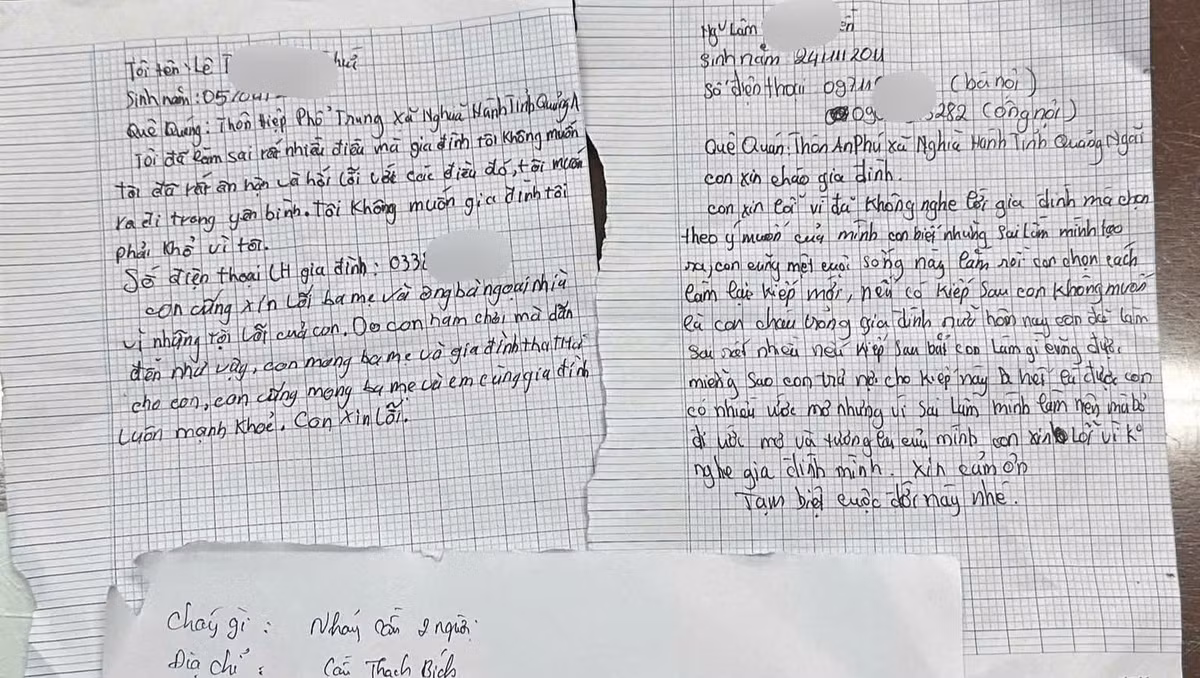 Tôi tên: Lê T
Sinh năm: 05/
Quê Quáng: Thôn Hiệp Phổ Trung xã Nghĩa Hành Tỉnh Quảng
Tôi đã làm sai rất nhiều điều mà gia đình tôi không muốn
tôi đã rất ân hận và hối lỗi với các điều đó, tôi muốn
ra đi trong yên bình. Tôi không muốn gia đình tôi
phải khổ vì tôi.
Số điện thoại LH gia đình: 033
con cũng xin lỗi ba mẹ và ông bà ngoại nhìa
vì những tội lỗi của con. Do con ham chơi mà dẫn
đến như vậy, con mong ba mẹ và gia đình tha thứ
cho con, con cũng mong ba mẹ và em cùng gia đình
luôn mạnh khoẻ. Con xin lỗi.
Ng Lâm
Sinh năm 24/11/2011
Số điện thoại 0971 (bà nội)
09 5282 (ông nội)
Quê Quán: Thôn An Phú xã Nghĩa Hành Tỉnh Quảng Ngãi
con xin chào gia đình.
con xin lỗi vì đã không nghe lời gia đình mà chọn
theo ý muốn của mình con biết những sai lầm mình tạo
ra, con cũng mệt cuộc sống này lắm rồi con chọn cách
làm lại kiếp mới, nếu có kiếp sau con không muốn
là con cháu trong gia đình nữa hôm nay con đã làm
sai rất nhều nếu kiếp sau bắt con làm gì cũng được
miễng sao con trả nợ cho kiếp này là được con
có nhiều ước mơ nhưng vì sai lầm mình làm nên mà bỏ
đi ước mơ và tương lai của mình con xin lỗi vì ko
nghe gia đình mình. xin cảm ơn
Tạm biệt cuộc đời này nhé.
Cháy gì: Nhảy cầu 2 người
Địa chỉ: Cầu Thạch Bích